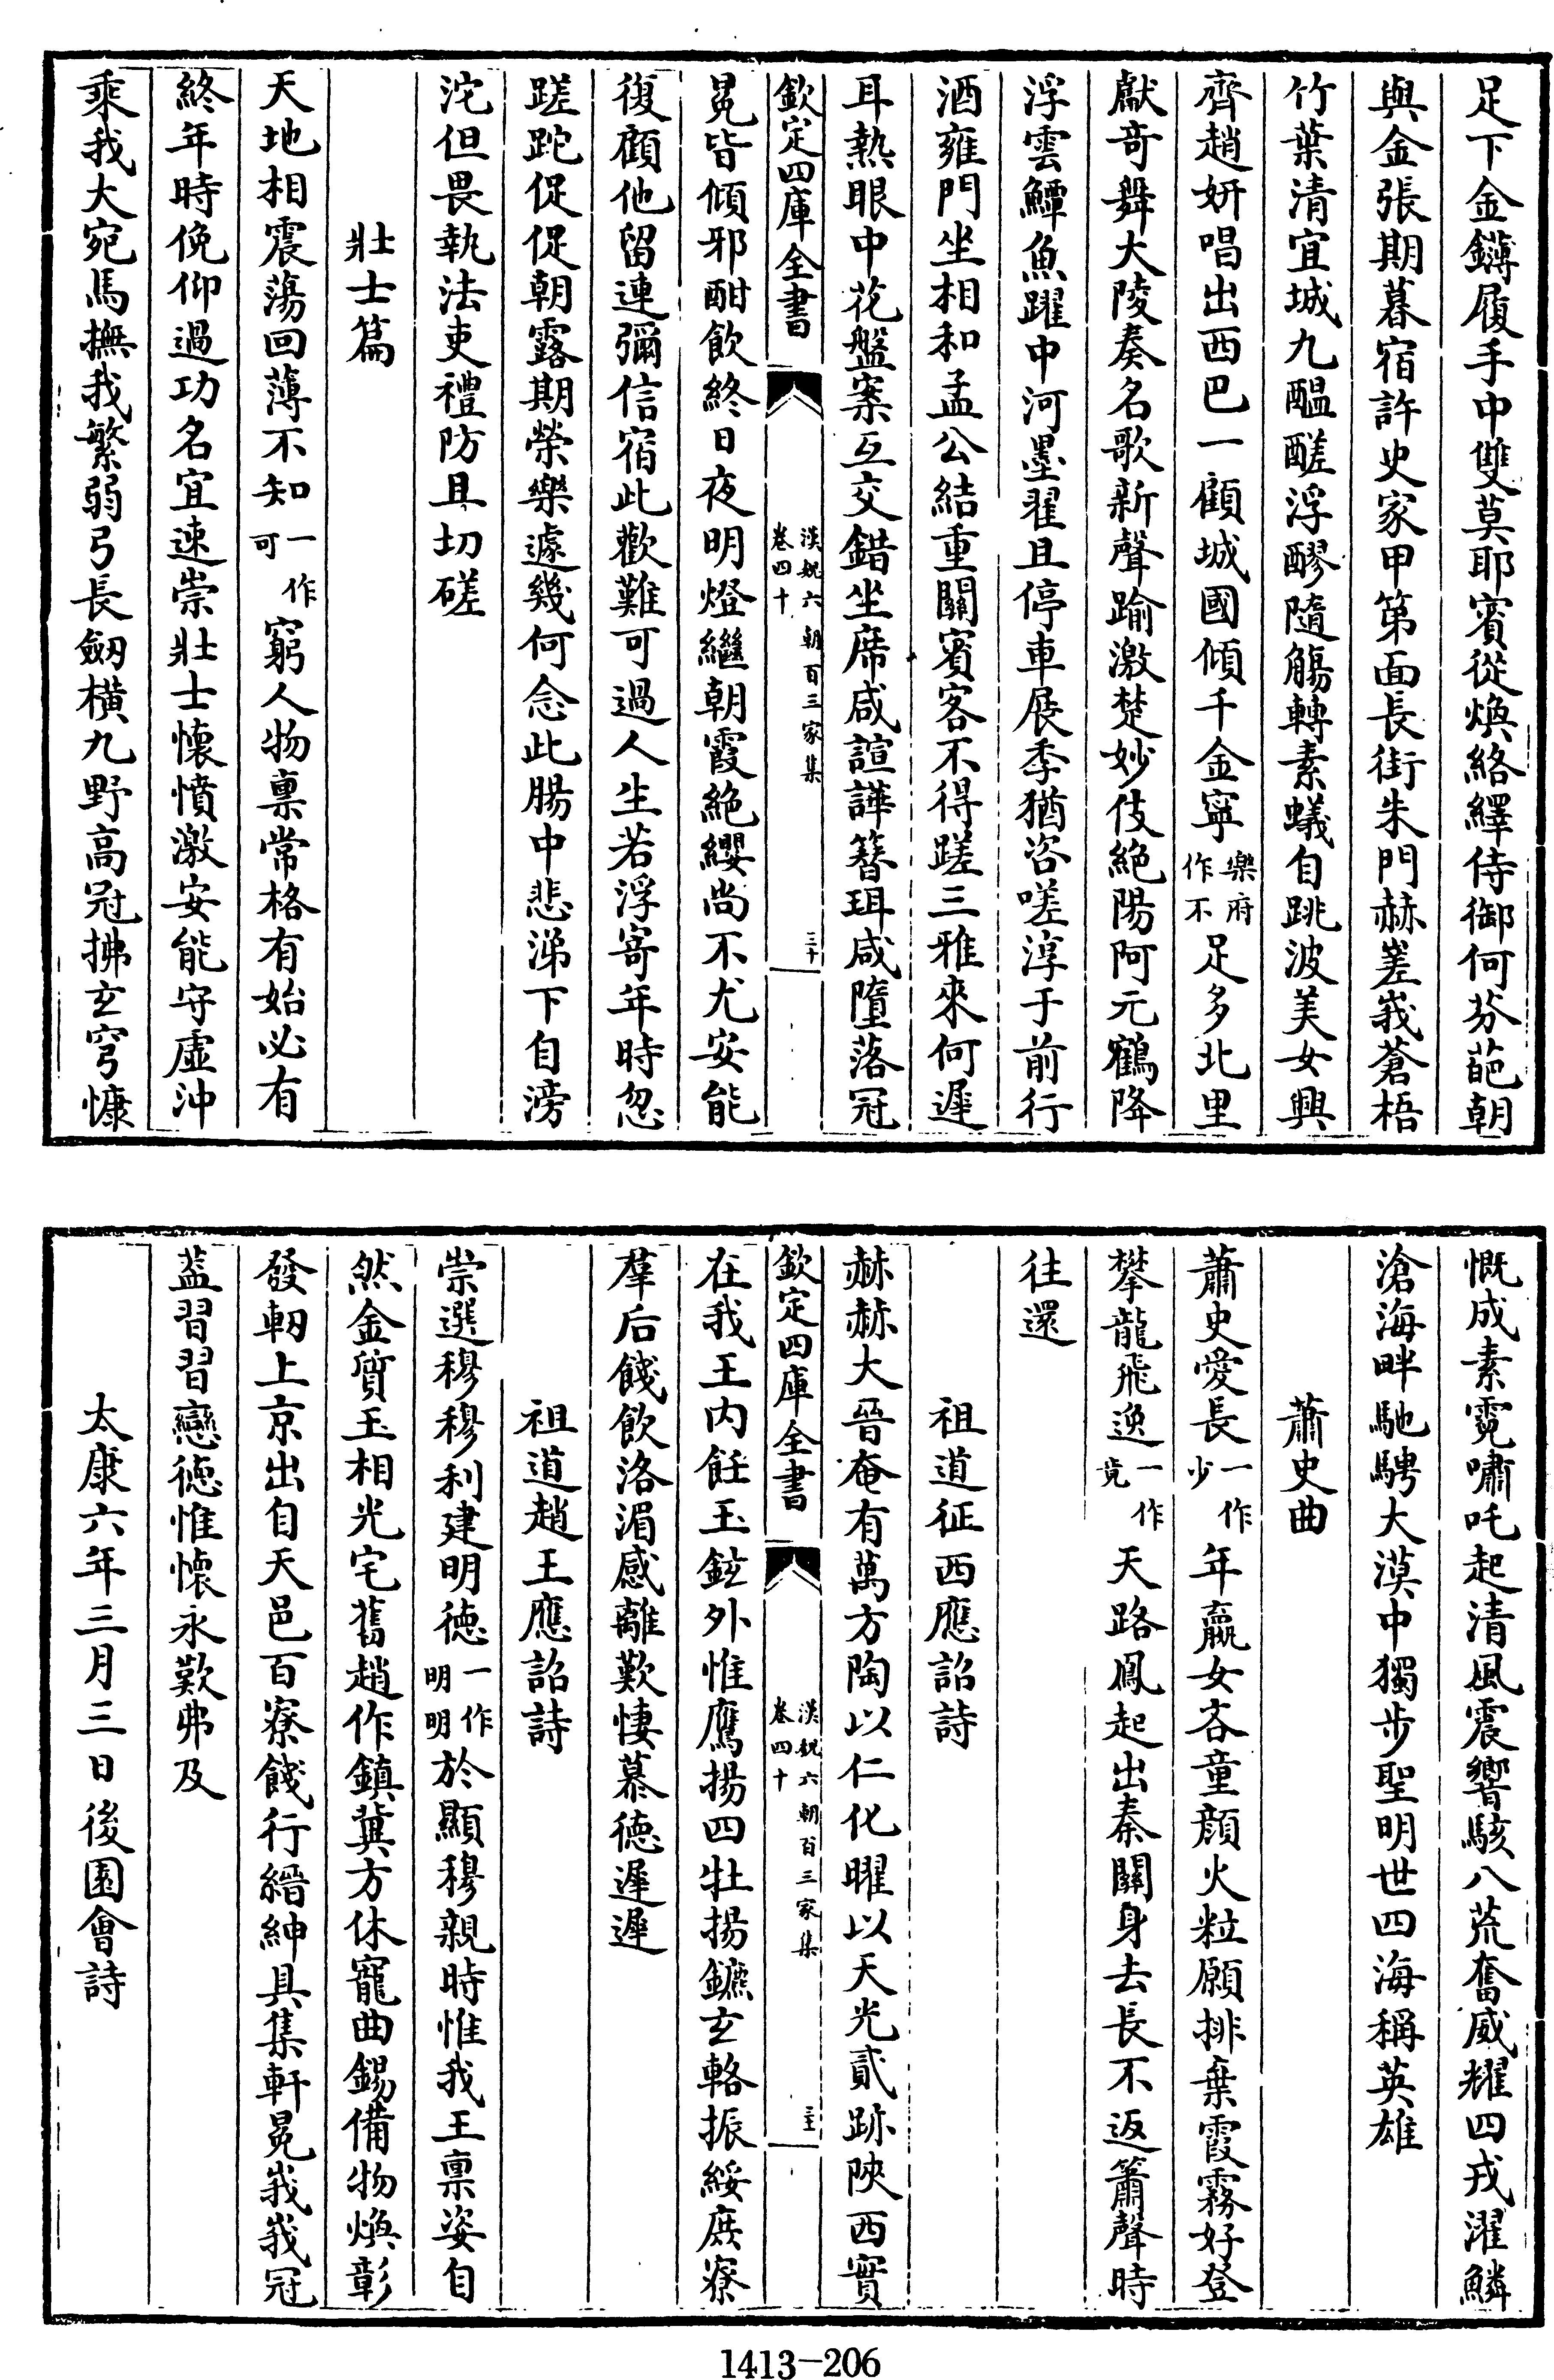 足下金鑮履手中雙莫耶賓從煥絡繹侍御何芬葩朝
與金張期暮宿許史家甲第面長街朱門赫嵳峩蒼梧
竹葉清宜城九醖醝浮醪隨觴轉素蟻自跳波美女興
齊趙妍唱出西巴一顧城國傾千金寧樂府作不足多北里
獻竒舞大陵奏名歌新聲踰激楚妙伎絶陽阿元鶴降
浮雲鱏魚躍中河墨翟且停車展季猶咨嗟淳于前行
酒雍門坐相和孟公結重關賓客不得蹉三雅來何遲
耳熱眼中花盤案互交錯坐席咸諠譁簪珥咸墮落冠
欽定四庫全書 漢魏六朝百三家集 卷四十 三十
冕皆傾邪酣飲終日夜明燈繼朝霞絶纓尚不尤安能
復顧他留連彌信宿此歡難可過人生若浮寄年時忽
蹉跎促促朝露期榮樂遽幾何念此腸中悲涕下自滂
沱但畏執法吏禮防且切磋
壯士篇
天地相震蕩回薄不知一作可窮人物稟常格有始必有
終年時俛仰過功名宜速崇壯士懷憤激安能守虛沖
乘我大宛馬撫我繁弱弓長劒横九野高冠拂玄穹慷
慨成素霓嘯吒起清風震響駭八荒奮威耀四戎濯鱗
滄海畔馳騁大漠中獨步聖明世四海稱英雄
蕭史曲
蕭史愛長一作少年嬴女吝童顔火粒願排棄霞霧好登
攀龍飛逸一作竟天路鳳起出秦關身去長不返簫聲時
往還
祖道征西應詔詩
赫赫大晉奄有萬方陶以仁化曜以天光貳跡陜西實
欽定四庫全書 漢魏六朝百三家集 卷四十 三十一
在我王内飪玉鉉外惟鷹揚四牡揚鑣玄輅振綏庶寮
羣后餞飲洛湄感離歎悽慕德遲遲
祖道趙王應詔詩
崇選穆穆利建明德一作明明於顯穆親時惟我王稟姿自
然金質玉相光宅舊趙作鎮冀方休寵曲錫備物煥彰
發軔上京出自天邑百寮餞行縉紳具集軒冕峩峩冠
葢習習戀德惟懷永歎弗及
太康六年三月三日後園會詩
1413—206